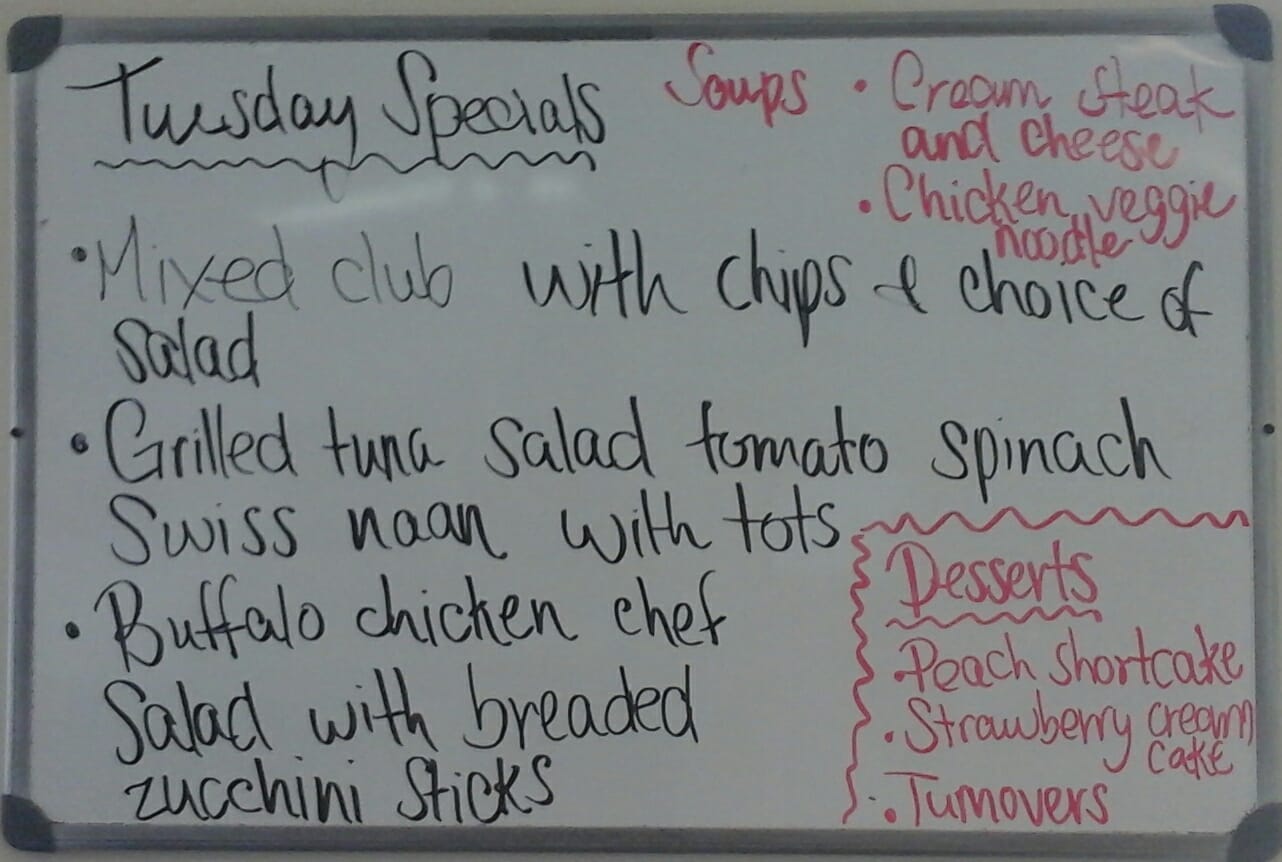 Tuesday Specials
Soups
• Cream steak
and cheese
• Chicken veggie
noodle
• Mixed club with chips & choice of
salad
• Grilled tuna salad tomato spinach
Swiss naan with tots
• Buffalo chicken chef
Salad with breaded
zucchini sticks
Desserts
• Peach shortcake
• Strawberry cream
cake
• Turnovers